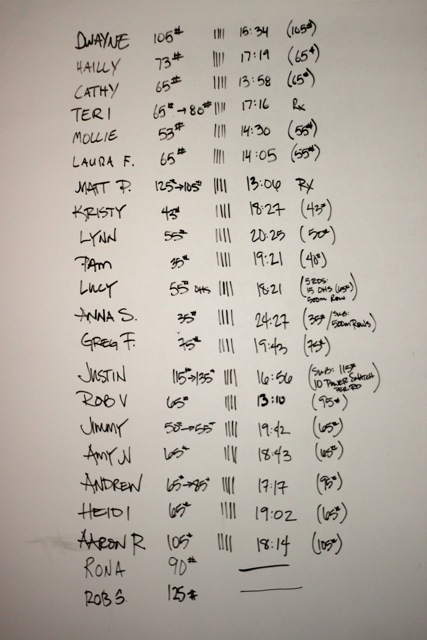 DWAYNE 105# |||| 15:34 (105#)
HAILLY 73# |||| 17:19 (65#)
CATHY 65# |||| 13:58 (65#)
TERI 65# → 80# |||| 17:16 Rx
MOLLIE 53# |||| 14:30 (55#)
LAURA F. 65# |||| 14:05 (55#)
MATT P. 125#→105# |||| 13:06 RX
KRISTY 43# |||| 18:27 (43#)
LYNN 55# |||| 20:25 (50#)
PAM 35# |||| 19:21 (40#)
LUCY 55# OHS |||| 18:21 (5 RDS:
15 OHS (65#)
500m Row)
ANNA S. 35# |||| 24:27 (35# / SUB:
500m Rows)
GREG F. 75# |||| 19:43 (75#)
JUSTIN 115#→135# |||| 16:56 (SUB: 115#
10 POWER SNATCH
PER RD)
ROB V 65# |||| 13:10 (95#)
JIMMY 50#→55# |||| 19:42 (65#)
AMY N 65# |||| 18:43 (65#)
ANDREW 65#→85# |||| 17:17 (95#)
HEIDI 65# |||| 19:02 (65#)
AARON R 105# |||| 18:14 (105#)
RONA 90#
ROB S. 125#